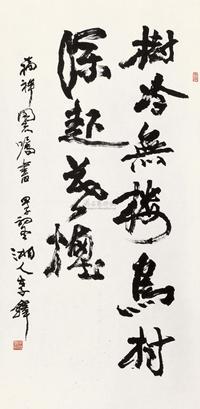 樹冷無棲鳥村
深起暮煙
福祥同志囑書 甲子 湘人李鐸